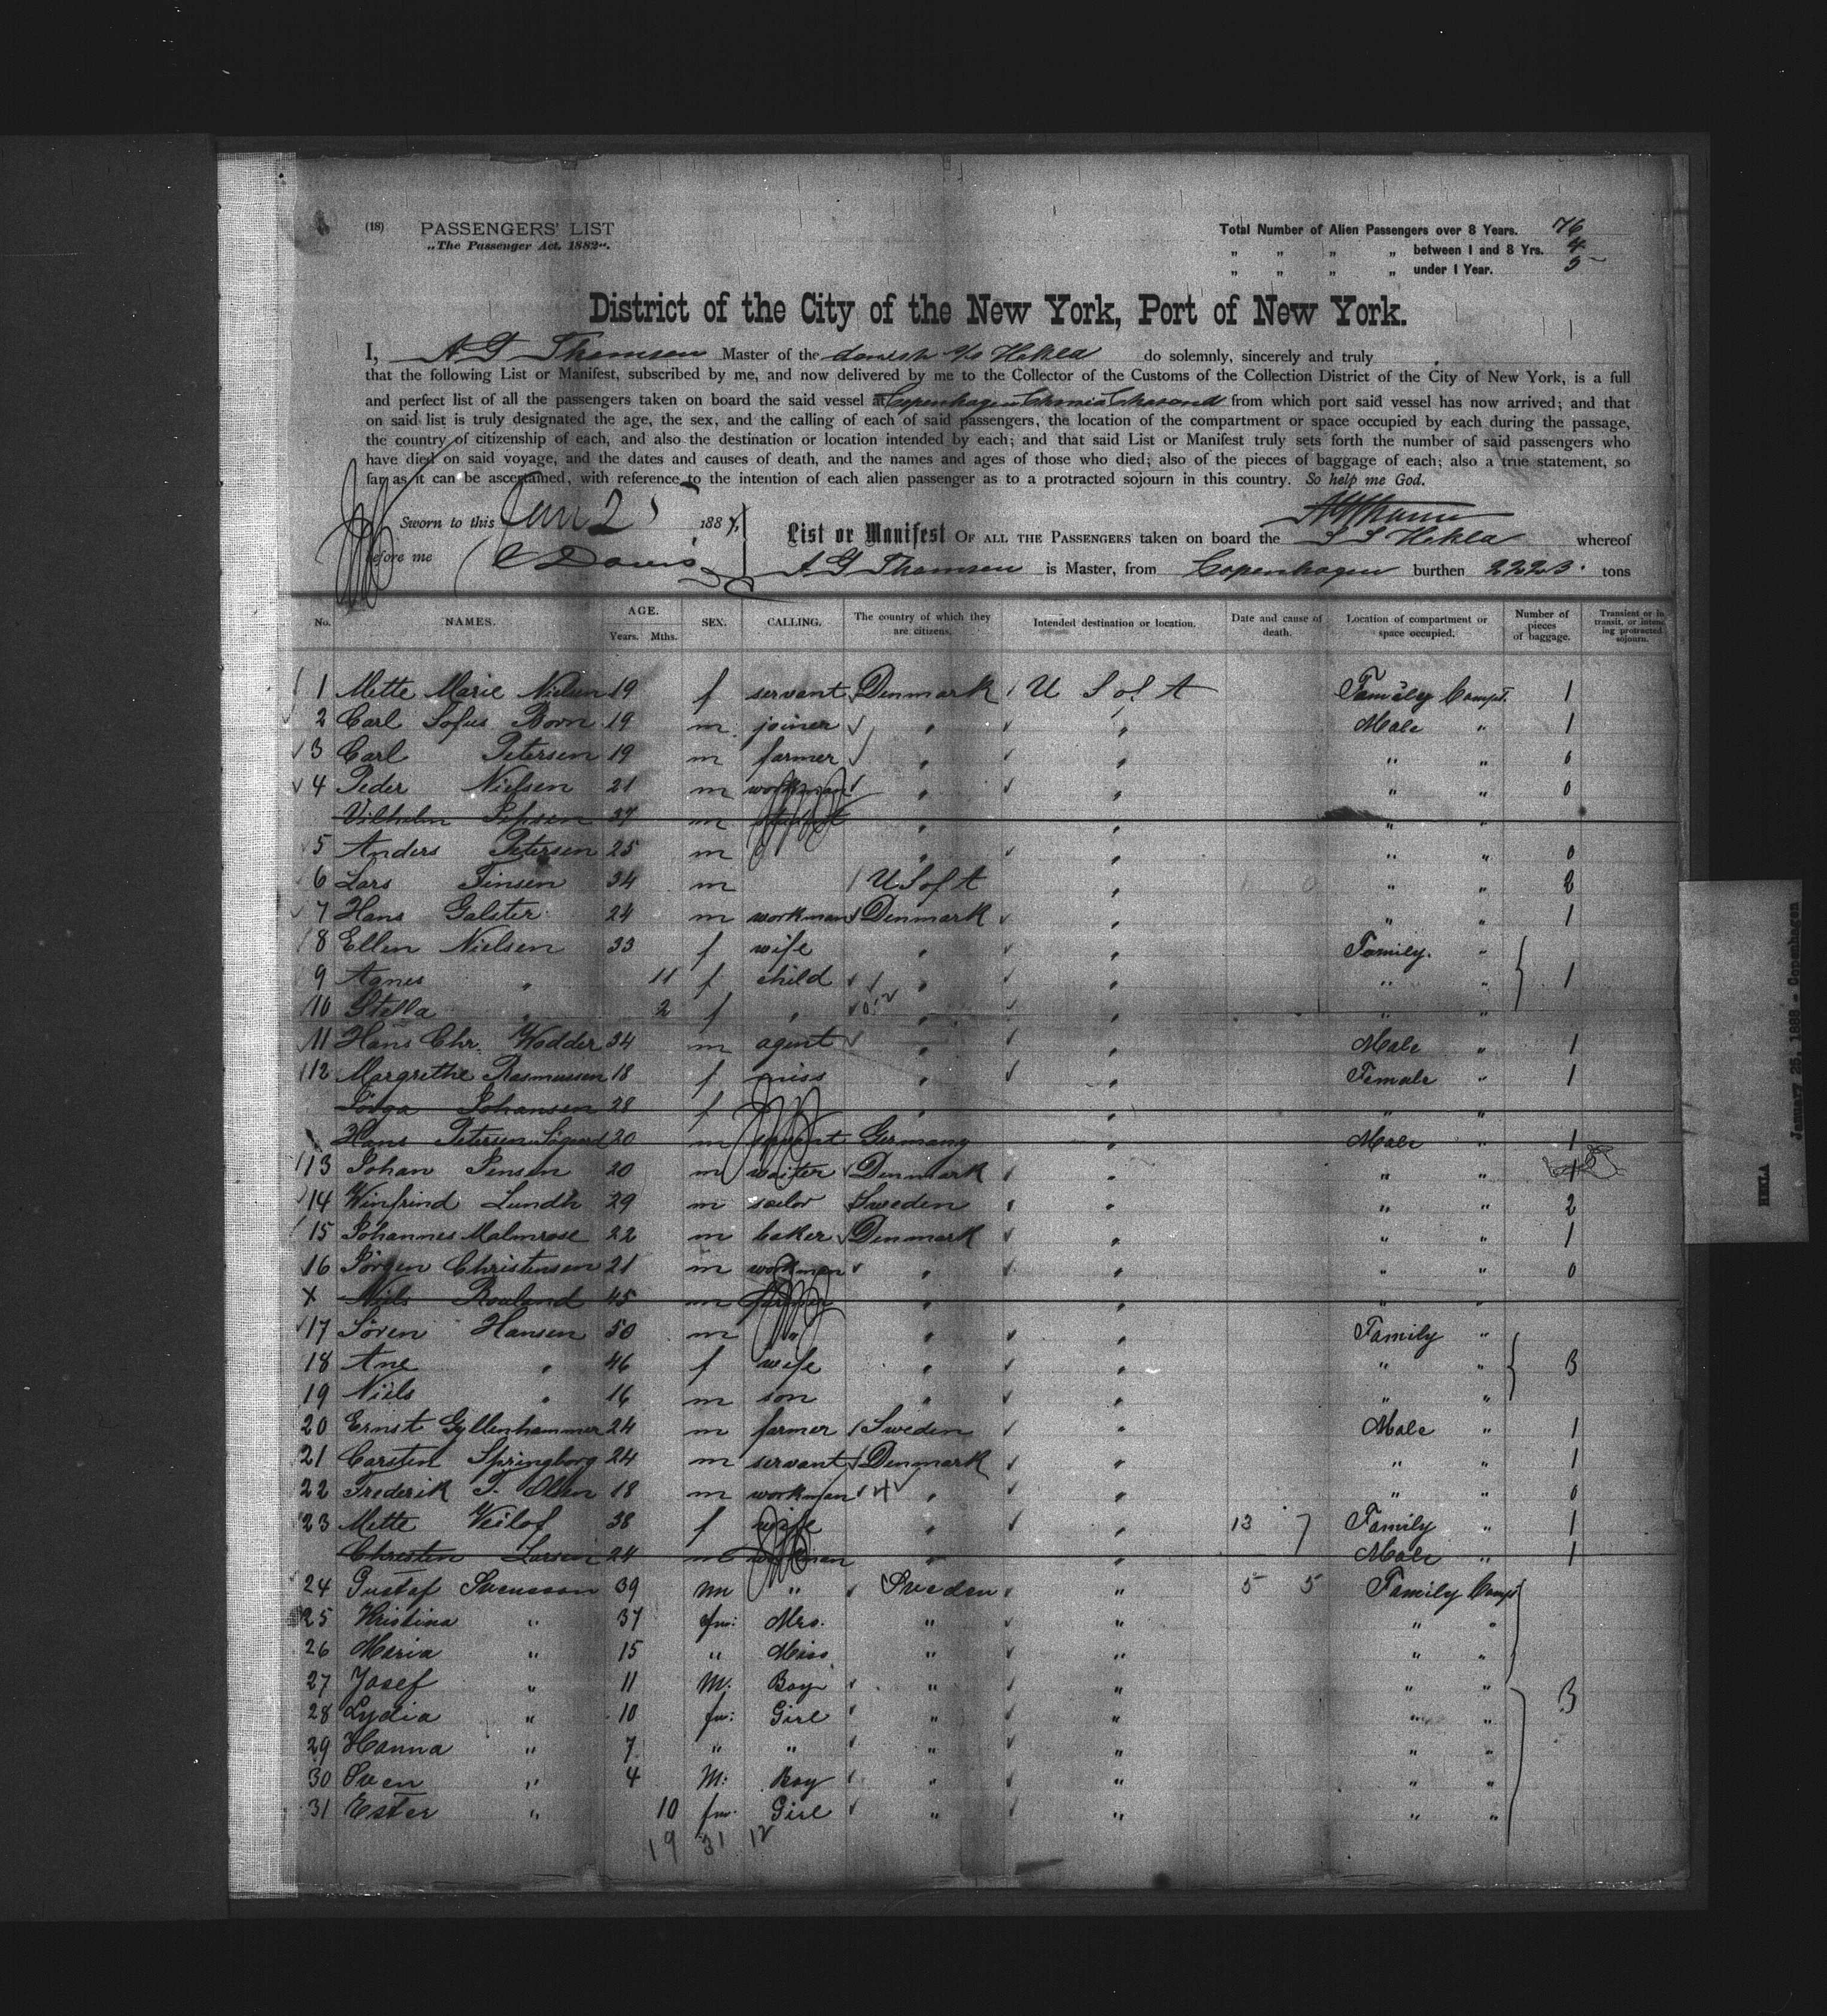 (18) PASSENGERS' LIST
„The Passenger Act. 1882".
Total Number of Alien Passengers over 8 Years. 76
„ „ „ „ between 1 and 8 Yrs. 4
„ „ „ „ under 1 Year. 5
District of the City of the New York, Port of New York.
I, A G Thomsen Master of the danish s/s Hekla do solemnly, sincerely and truly
that the following List or Manifest, subscribed by me, and now delivered by me to the Collector of the Customs of the Collection District of the City of New York, is a full
and perfect list of all the passengers taken on board the said vessel at Copenhagen from which port said vessel has now arrived; and that
on said list is truly designated the age, the sex, and the calling of each of said passengers, the location of the compartment or space occupied by each during the passage,
the country of citizenship of each, and also the destination or location intended by each; and that said List or Manifest truly sets forth the number of said passengers who
have died on said voyage, and the dates and causes of death, and the names and ages of those who died; also of the pieces of baggage of each; also a true statement, so
far as it can be ascertained, with reference to the intention of each alien passenger as to a protracted sojourn in this country. So help me God.
Sworn to this Jan 25 188
before me C Davis
List or Manifest OF ALL THE PASSENGERS taken on board the S S Hekla whereof
A G Thomsen is Master, from Copenhagen burthen 2223 tons
No. NAMES. AGE. Years. Mths. SEX. CALLING. The country of which they are citizens. Intended destination or location. Date and cause of death. Location of compartment or space occupied. Number of pieces of baggage. Transient or in transit, or intending protracted sojourn.
1 Mette Marie Nielsen 19 f servant Denmark U S of A Family Compt. 1
2 Carl Sofus Born 19 m joiner " " Male " 1
3 Carl Petersen 19 m farmer " " " " 0
4 Peder Nielsen 21 m workman " " " " 0
Vilhelm Jepsen 37 m " " " "
5 Anders Petersen 25 m " " " " 0
6 Lars Jinsen 34 m U S of A " " " 2
7 Hans Galster 24 m workman Denmark " " " 1
8 Ellen Nielsen 33 f wife " " Family "
9 Agnes " 11 f child " " " " 1
10 Stella " 2 f " " " " "
11 Hans Chr. Wodder 34 m agent " " Male " 1
12 Margrethe Rasmussen 18 f miss " " Female " 1
Johansen 28 f " " " "
Hans Petersen Sigaard 20 m servant Germany " Male " 1
13 Johan Jensen 20 m waiter Denmark " " " 1
14 Winfrind Lundh 29 m sailor Sweden " " " 2
15 Johannes Malmrose 22 m baker Denmark " " " 1
16 Jörgen Christensen 21 m workman " " " " 0
X Niels Rouland 45 m farmer " " " "
17 Sören Hansen 50 m " " " Family "
18 Ane " 46 f wife " " " " 3
19 Niels " 16 m son " " " "
20 Ernst Gyllenhammer 24 m farmer Sweden " Male " 1
21 Carsten Springborg 24 m servant Denmark " " " 1
22 Frederik T. Olsen 18 m workman " " " " 0
23 Mette Veilof 38 f wife " " 13 7 Family " 1
Christen Larsen 24 m workman " " Male " 1
24 Gustaf Svensson 39 m " Sweden " 5 5 Family Compt
25 Kristina " 37 fm: Mrs. " " " "
26 Maria " 15 " Miss " " " "
27 Josef " 11 M: Boy " " " " 3
28 Lydia " 10 fm: Girl " " " "
29 Hanna " 7 " " " " " "
30 Sven " 4 M: Boy " " " "
31 Ester " 10 fm: Girl " " " "
19 31 12
HEKLA January 25, 1888 - Copenhagen